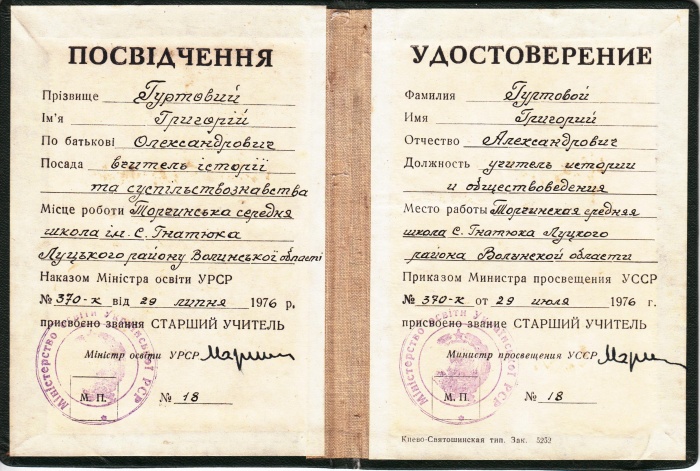 ПОСВІДЧЕННЯ
Прізвище Гуртовий
Ім'я Григорій
По батькові Олександрович
Посада вчитель історії
та суспільствознавства
Місце роботи Торчинська середня
школа ім. Є. Гнатюка
Луцького району Волинської області
Наказом Міністра освіти УРСР
№ 370-к від 29 липня 1976 р.
присвоєно звання СТАРШИЙ УЧИТЕЛЬ
Міністр освіти УРСР
Міністерство освіти Української РСР
М. П. № 18
УДОСТОВЕРЕНИЕ
Фамилия Гуртовой
Имя Григорий
Отчество Александрович
Должность учитель истории
и обществоведения
Место работы Торчинская средняя
школа С. Гнатюка Луцкого
района Волынской области
Приказом Министра просвещения УССР
№ 370-к от 29 июля 1976 г.
присвоено звание СТАРШИЙ УЧИТЕЛЬ
Министр просвещения УССР
Міністерство освіти Української РСР
М. П. № 18
Киево-Святошинская тип. Зак. 5252